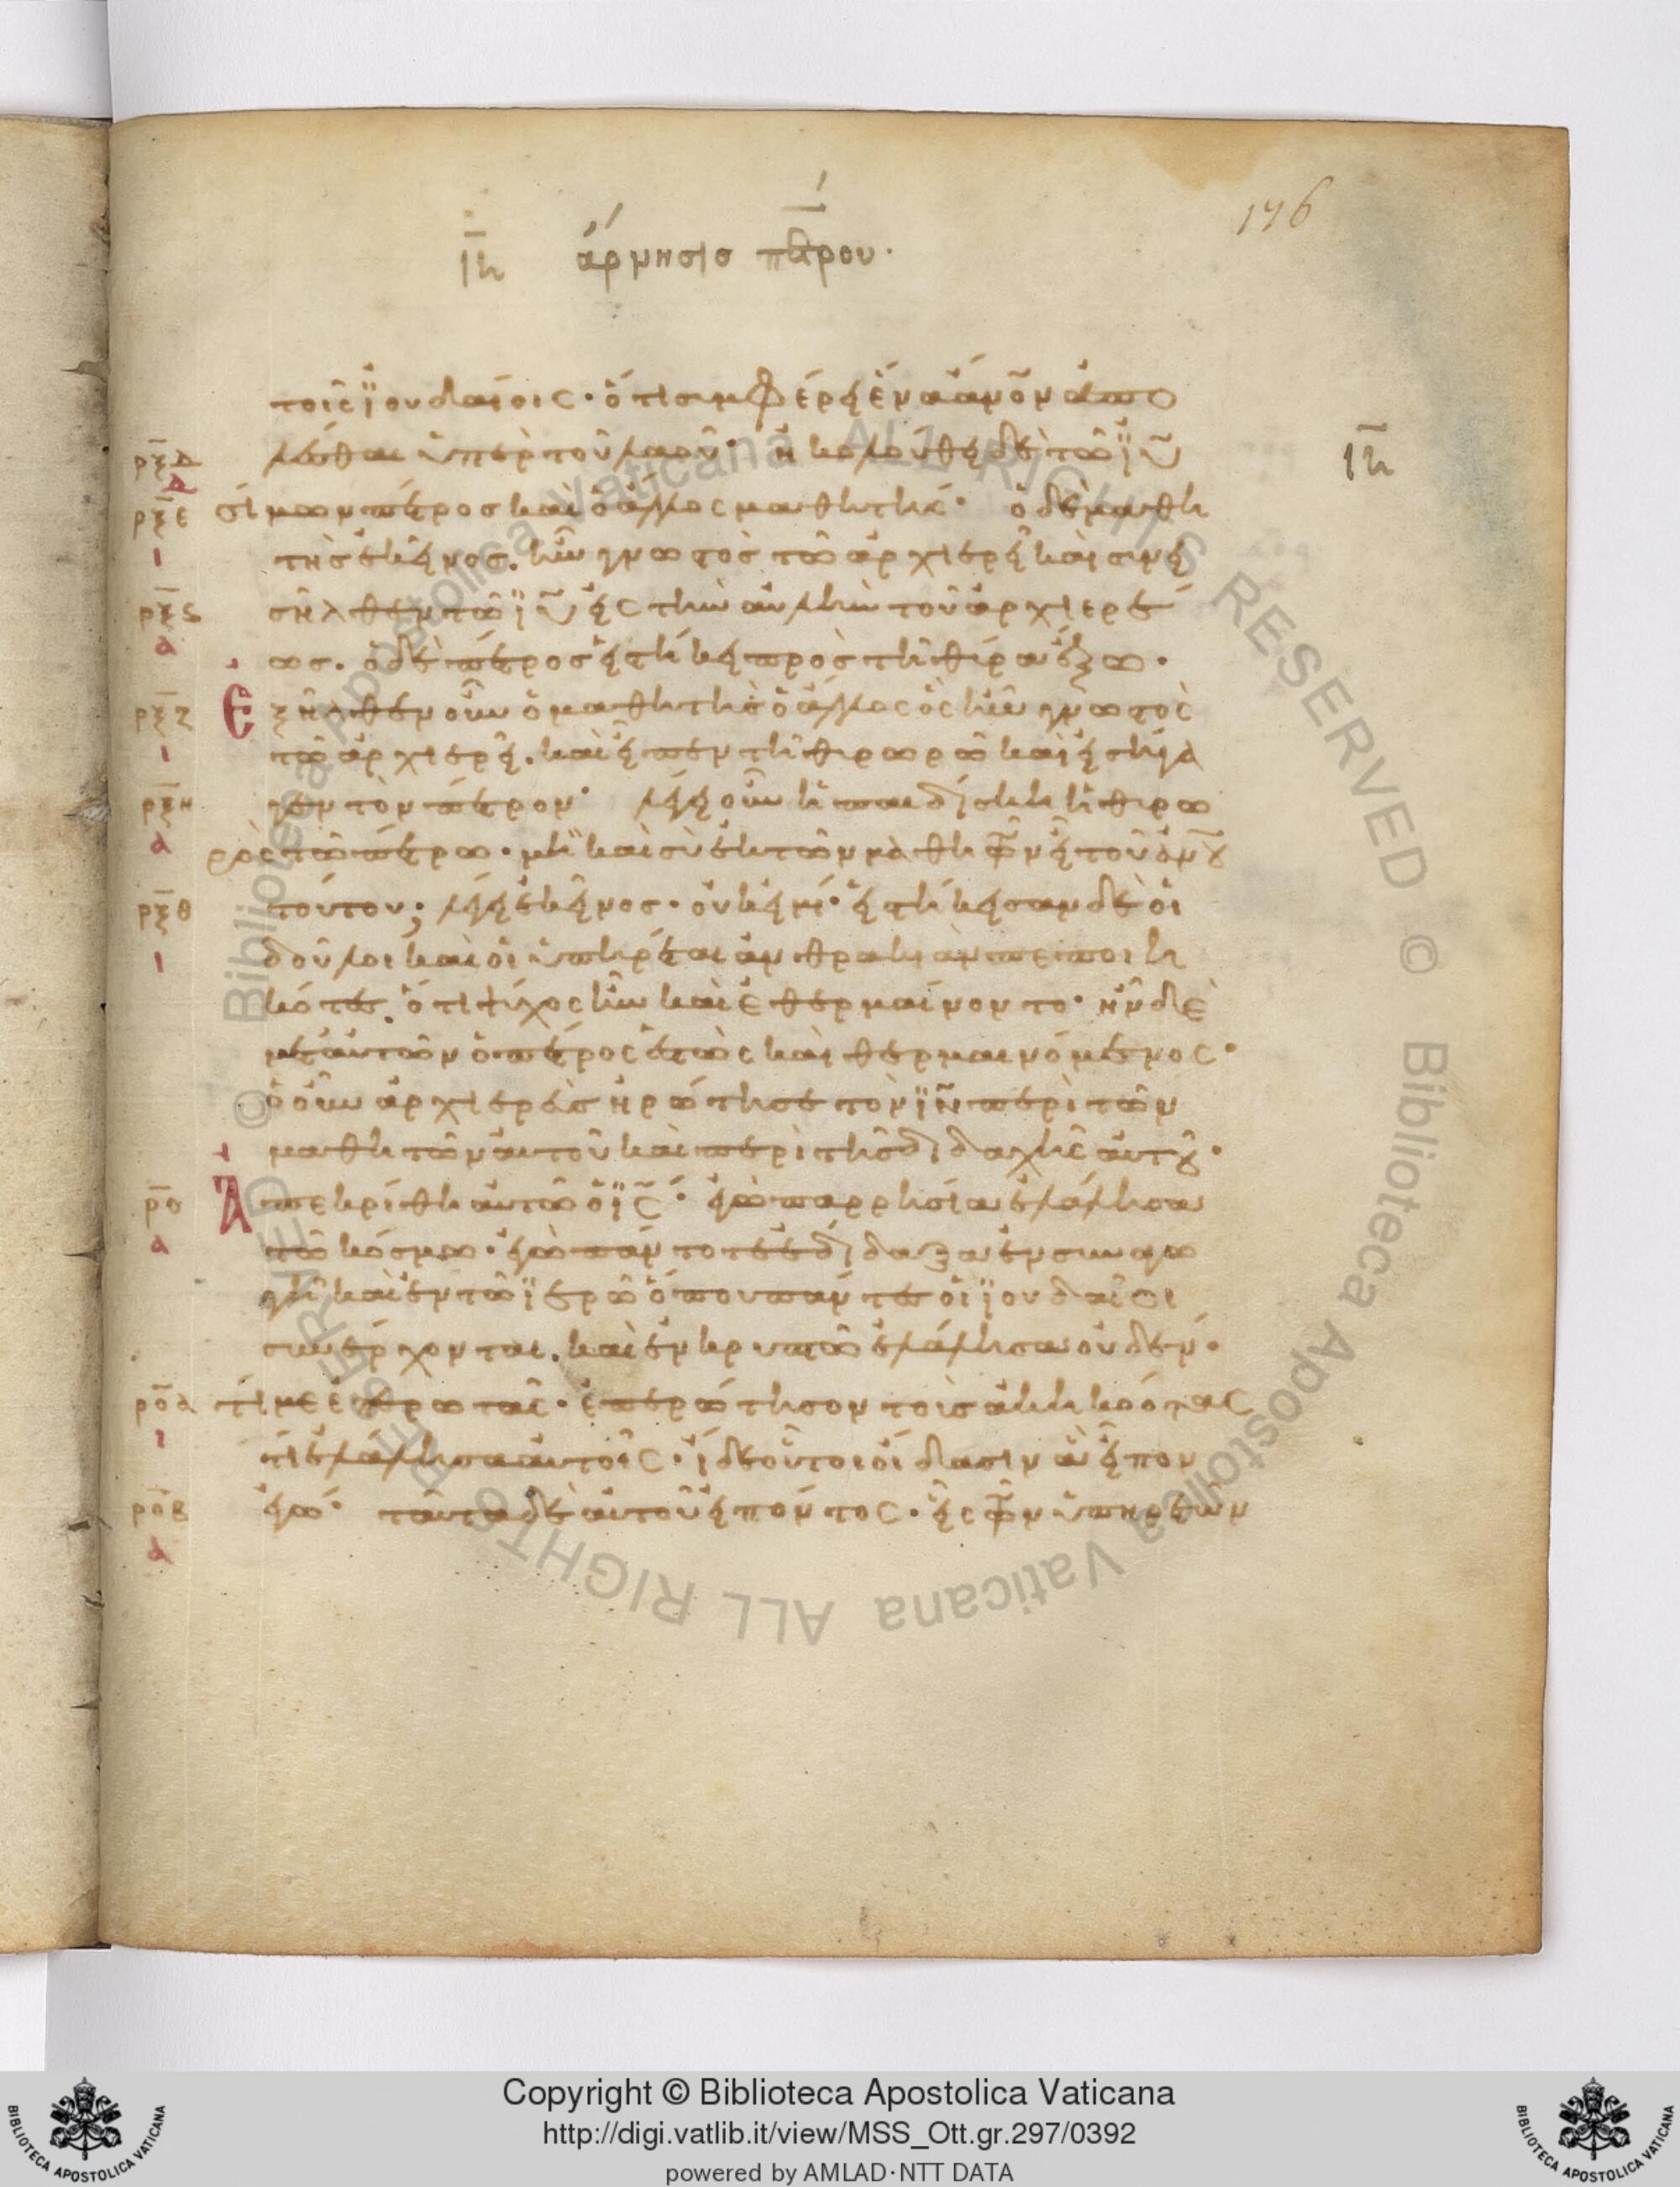 176
ιη ἄρνησις πέτρου·
τοῖς ϊουδαίοις· ὅτι συμφέρει ἕνα ἄνον ἀπο
λέσθαι ὑπὲρ τοῦ λαοῦ· ἠκολούθει δὲ τῶ ϊυ
ιη
ρξδ
α
ρξε
σίμων πέτρος καὶ ὁ ἄλλος μαθητής· ὁ δὲ μαθη
τὴς ἐκεῖνος. ἦν γνωστὸς τῶ ἀρχιερεῖ καὶ συνει
ι
ρξς
σῆλθεν τῶ ϊυ εἰς τὴν αὐλὴν τοῦ ἀρχιερέ
α
ως. ὁ δὲ πέτρος εἱστήκει πρὸς τῆ θύρα ἔξω·
ρξζ
Εξῆλθεν οὖν ὁ μαθητὴς ὁ ἄλλος ὃς ἦν γνωστὸς
ι
τῶ ἀρχιερεῖ. καὶ εἶπεν τῆ θυρωρῶ καὶ εἰσήγα
ρξη
γεν τὸν πέτρον· λέγει οὖν ἡ παιδίσκη ἡ θυρω
α
ρὸς τῶ πέτρω· μὴ καὶ σὺ ἐκ τῶν μαθητῶν εἶ τοῦ ἀνου
ρξθ
τούτου; λέγει ἐκεῖνος· οὐκ εἰμί· εἱστήκεισαν δὲ οἱ
ι
δοῦλοι καὶ οἱ ὑπηρέται ἀνθρακιὰν πεποιη
κότες. ὅτι ψύχος ἦν καὶ ἐθερμαίνοντο· ἦν δὲ
μετ αὐτῶν ὁ πέτρος ἑστὼς καὶ θερμαινόμενος·
ὁ οὖν ἀρχιερεὺς ἠρώτησε τὸν ϊν περὶ τῶν
μαθητῶν αὐτοῦ καὶ περὶ τῆς διδαχῆς αὐτοῦ·
ρο
Απεκρίθη αὐτῶ ὁ ϊς· ἐγὼ παρρησία ἐλάλησα
α
τῶ κόσμω· ἐγὼ πάντοτε ἐδίδαξα ἐν συναγω
γῆ καὶ ἐν τῶ ϊερῶ ὅπου πάντες οἱ ϊουδαῖοι
συνέρχονται. καὶ ἐν κρυπτῶ ἐλάλησα οὐδέν·
ροα
τί με ἐπερωτᾶς· ἐπερώτησον τοὺς ἀκηκοότας
ι
τί ἐλάλησα αὐτοῖς· ἴδε οὗτοι οἴδασιν ἃ εἶπον
ροβ
ἐγώ· ταῦτα δὲ αὐτοῦ εἰπόντος· εἷς τῶν ὑπηρετῶν
α
Copyright © Biblioteca Apostolica Vaticana
http://digi.vatlib.it/view/MSS_Ott.gr.297/0392
powered by AMLAD·NTT DATA
BIBLIOTECA APOSTOLICA VATICANA
BIBLIOTECA APOSTOLICA VATICANA
© Biblioteca Apostolica Vaticana ALL RIGHTS RESERVED © Biblioteca Apostolica Vaticana ALL RIGHTS RESERVED